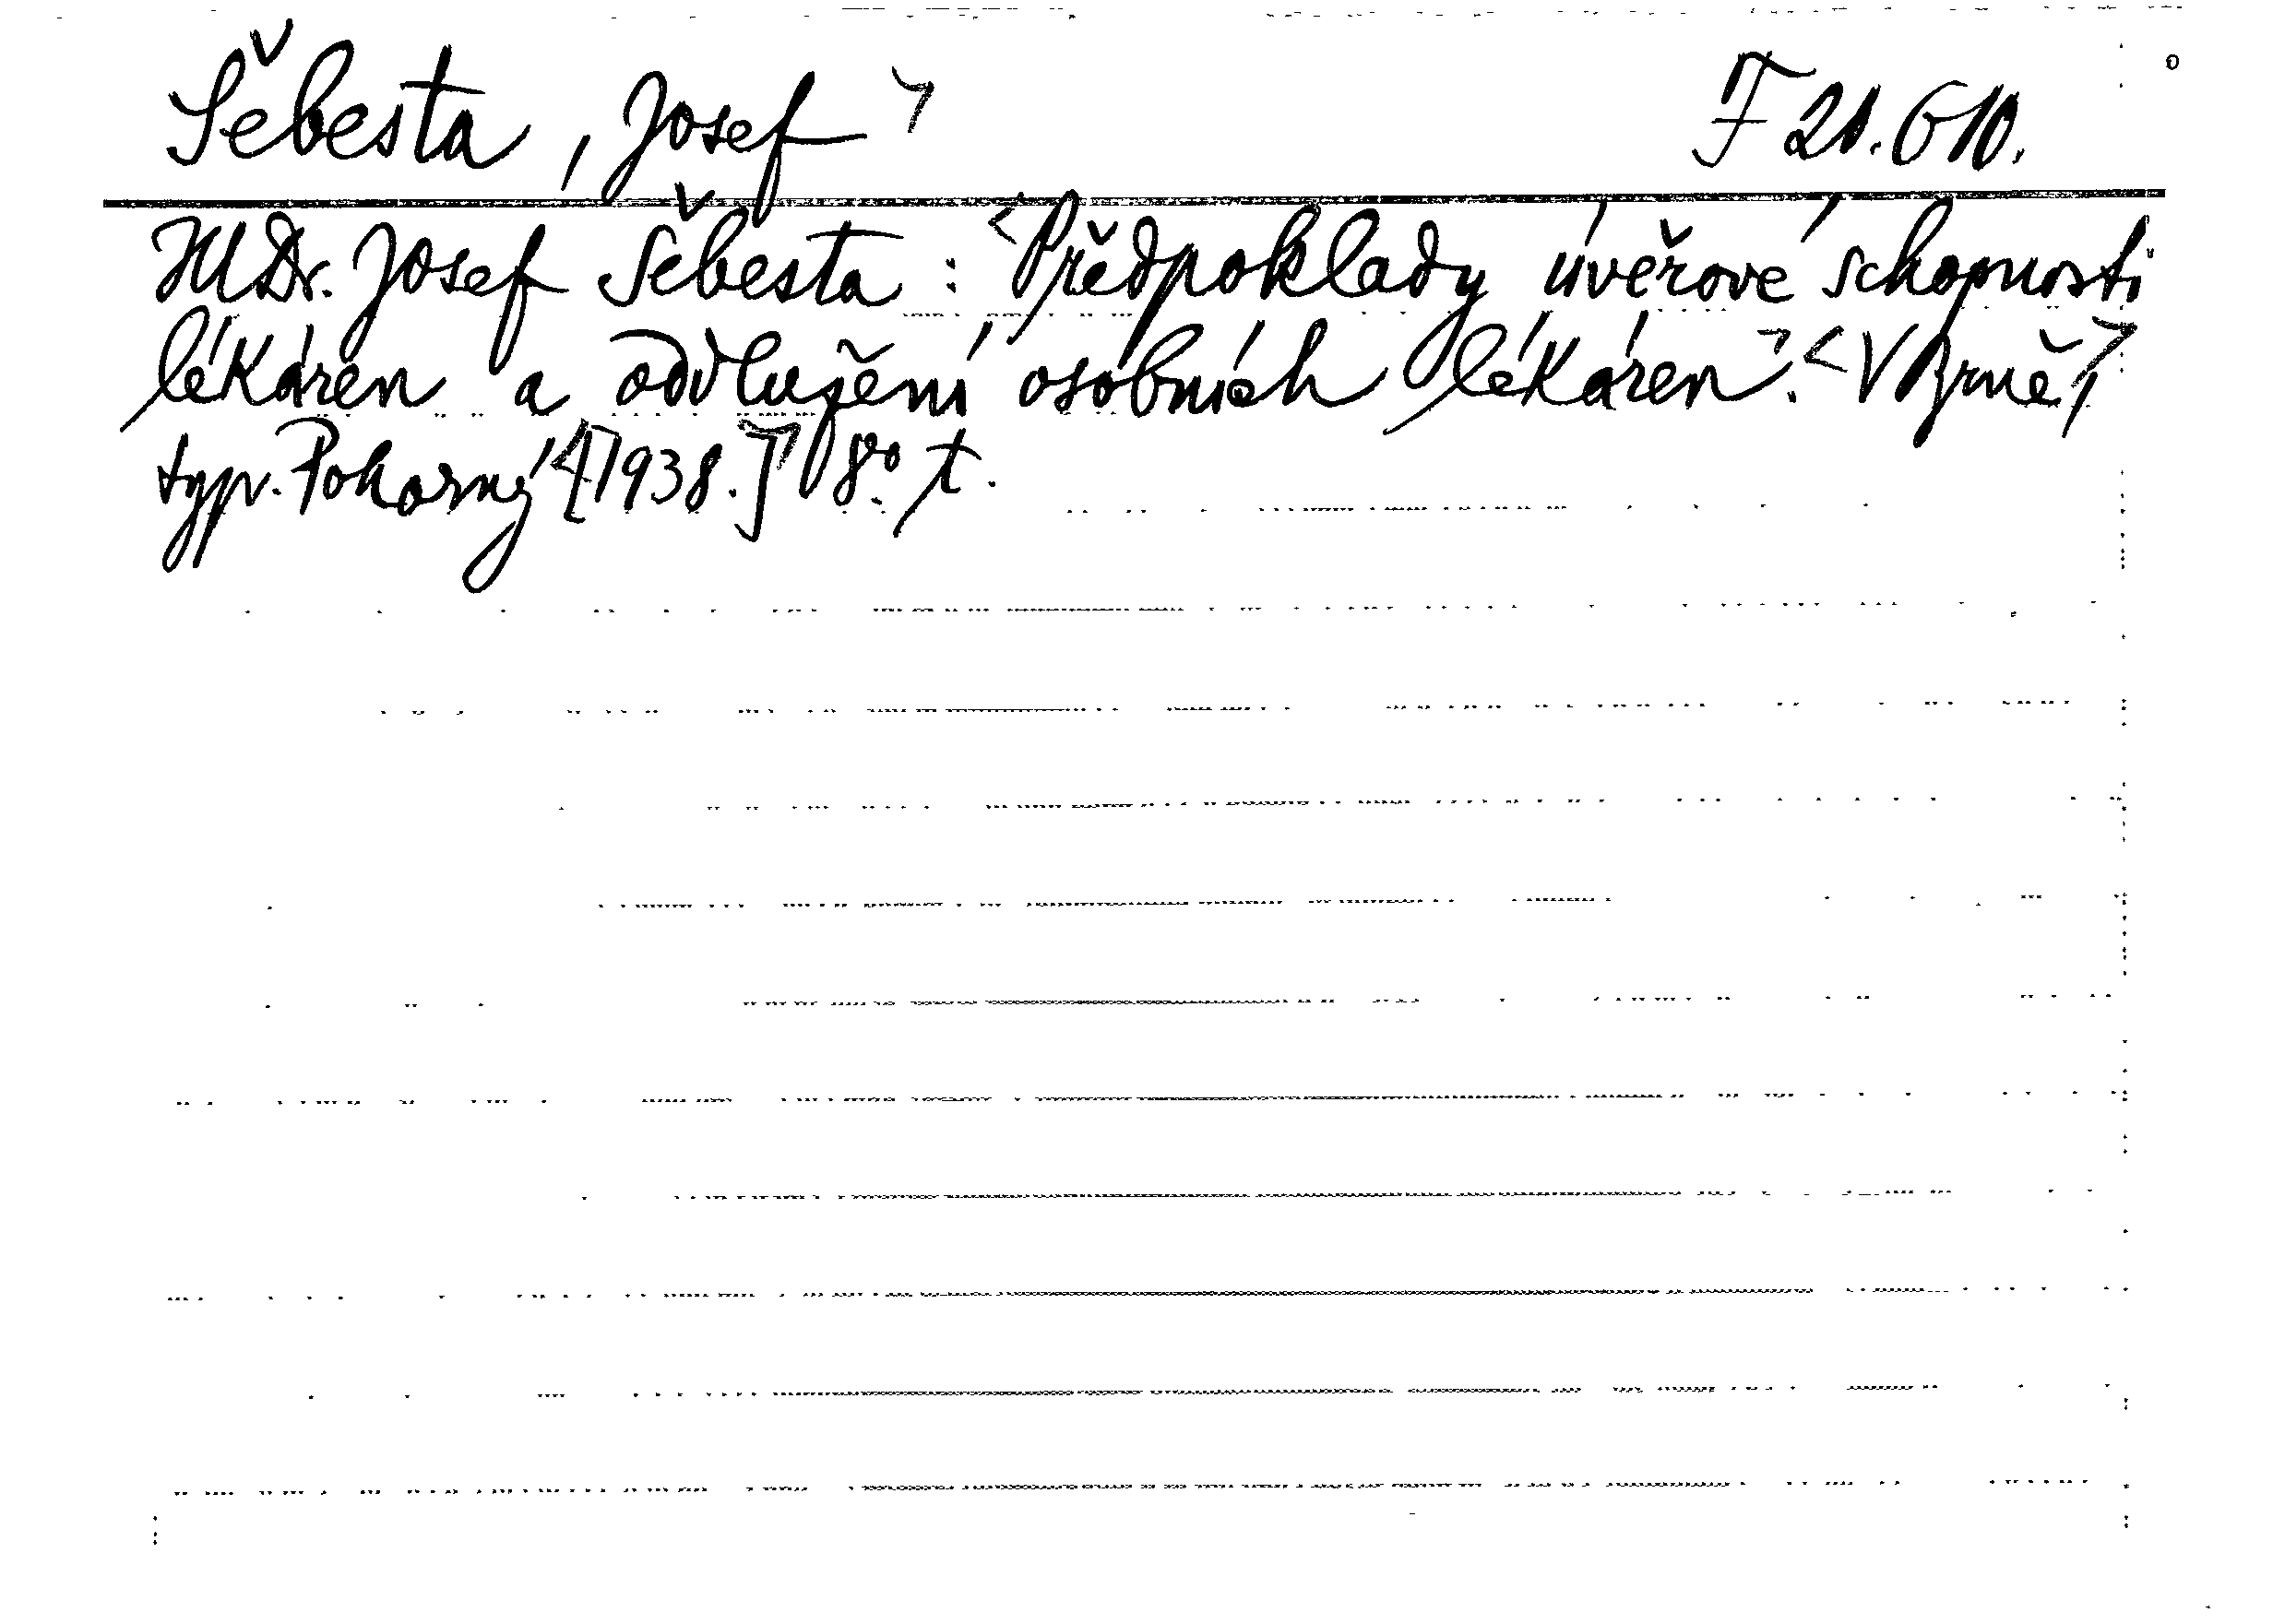 Šebesta, Josef >
F 21.610.
JUDr. Josef Šebesta: <Předpoklady úvěrové schopnosti
lékáren a oddlužení osobních lékáren>. <V Brně,>
typ. Pokorný <[1938.]> 8° t.